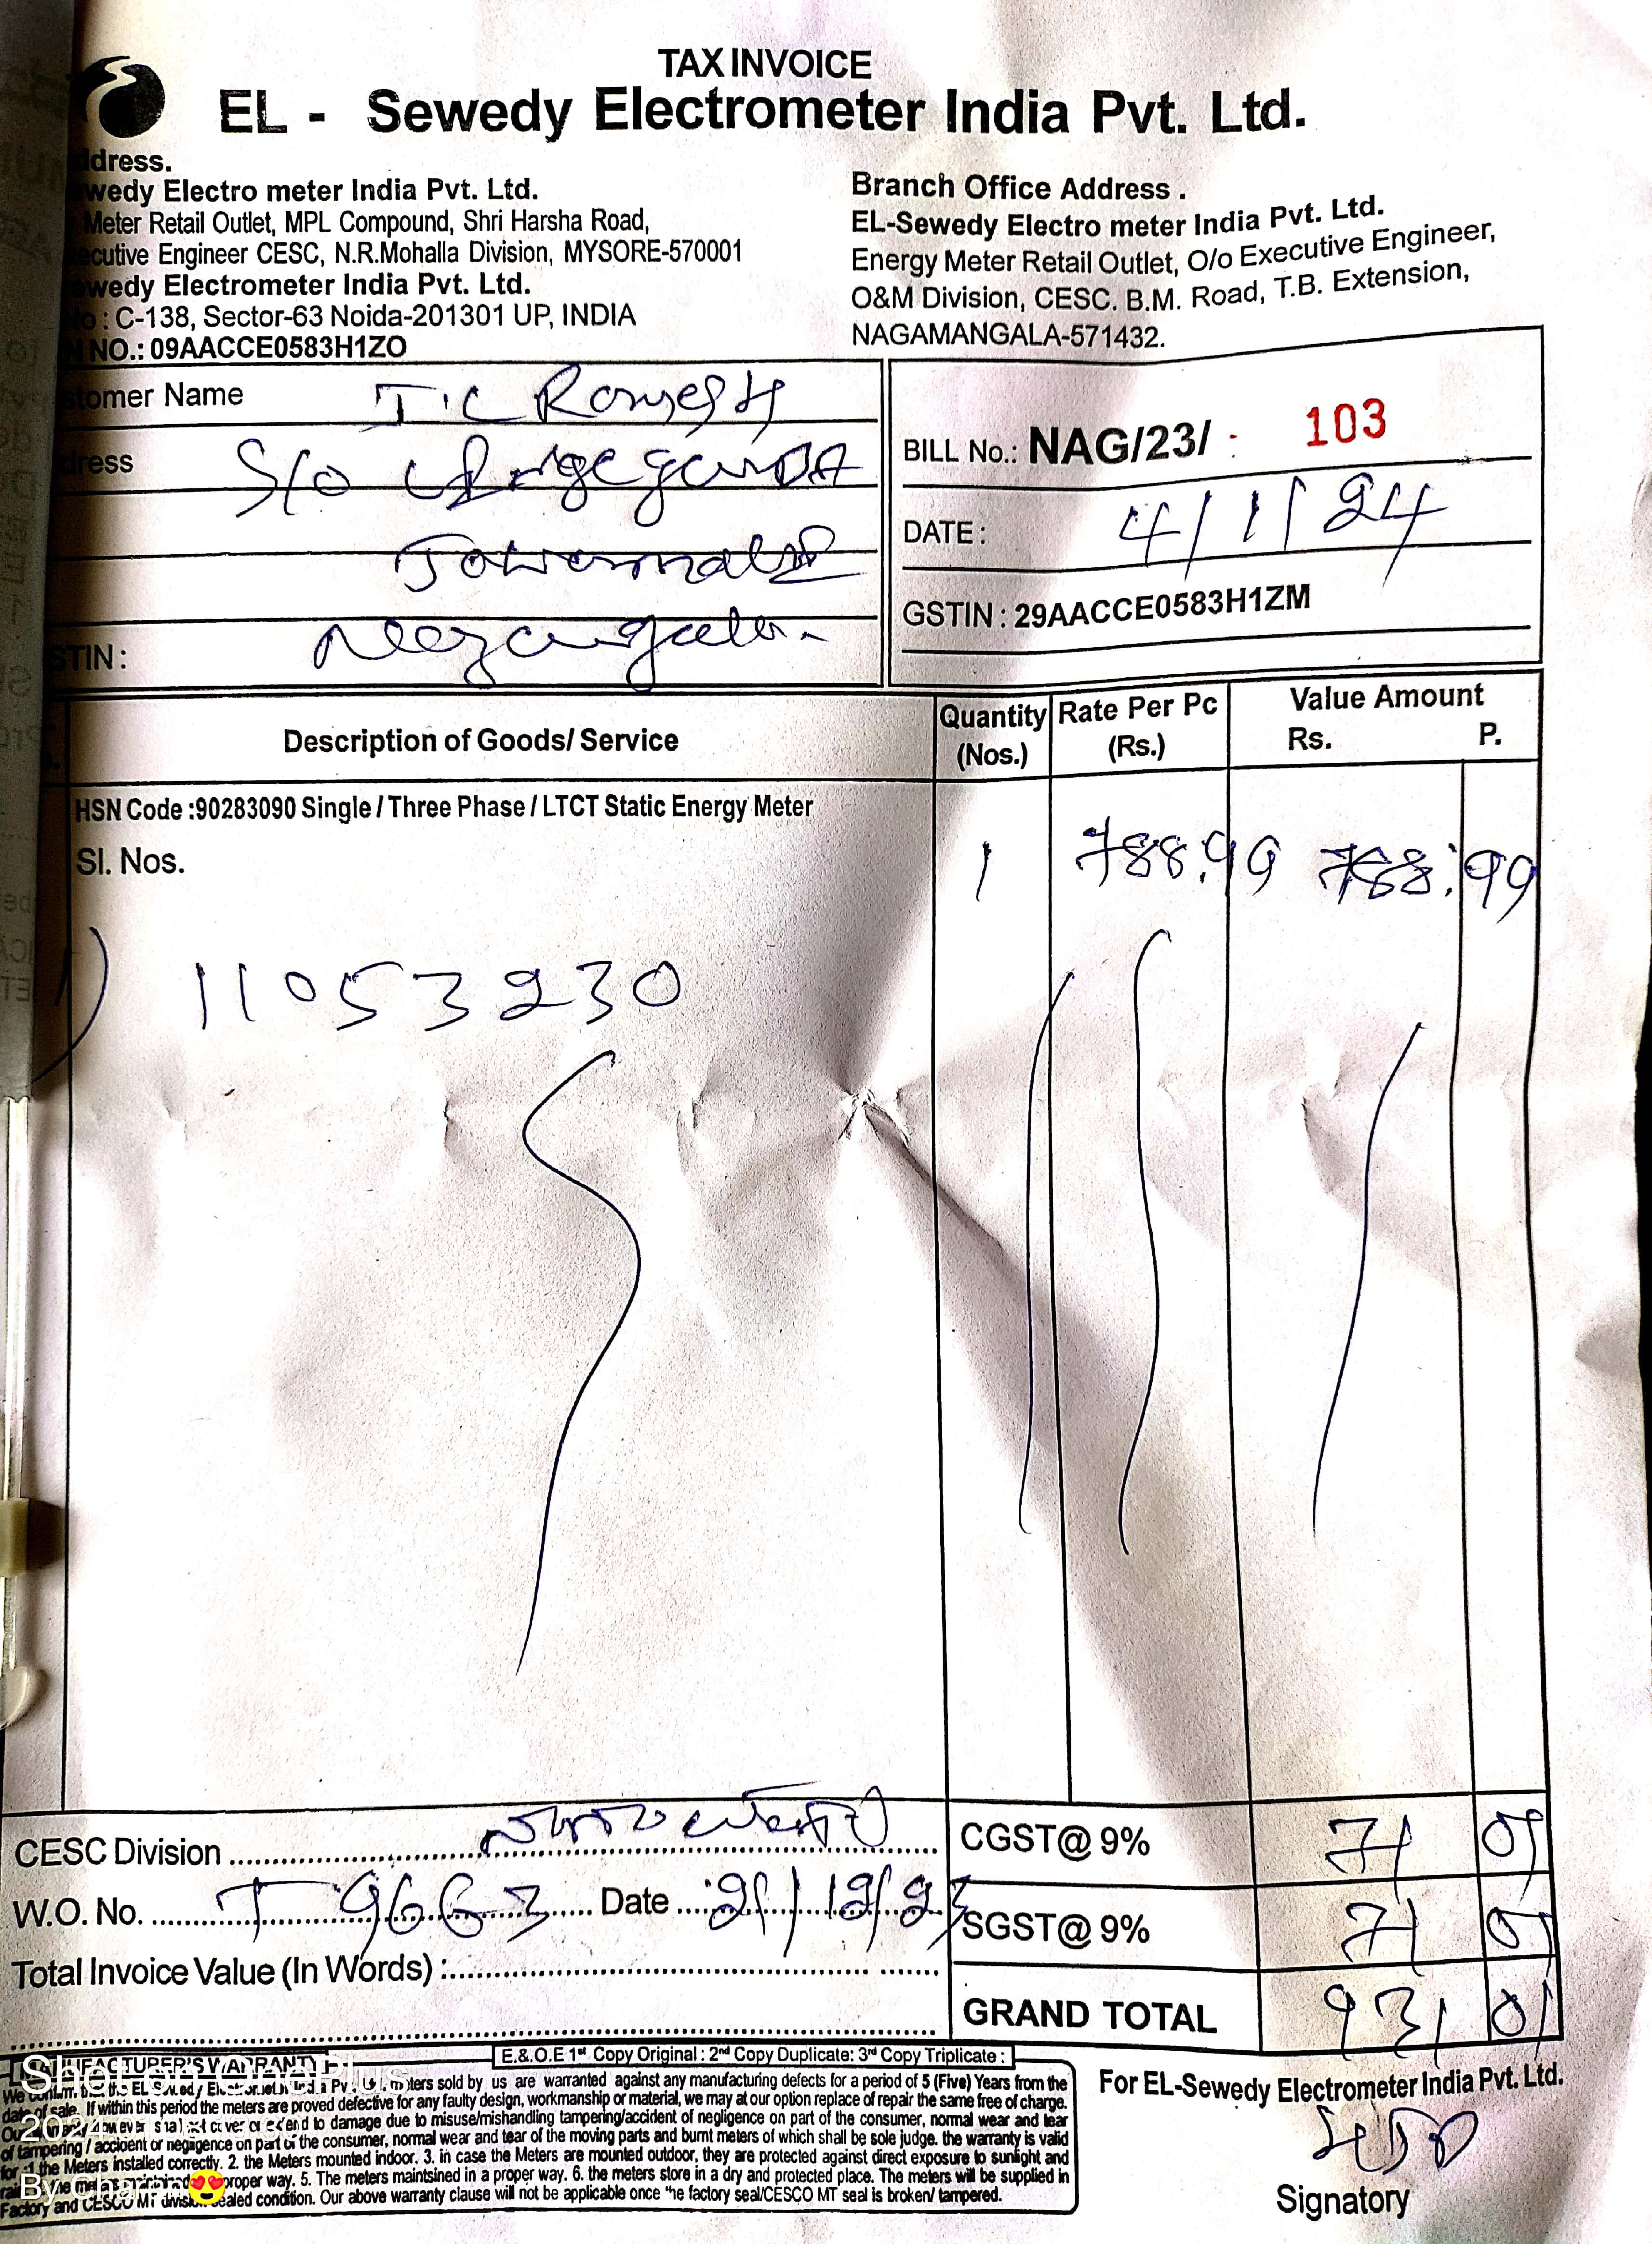 TAX INVOICE
EL - Sewedy Electrometer India Pvt. Ltd.
dress.
wedy Electro meter India Pvt. Ltd.
Meter Retail Outlet, MPL Compound, Shri Harsha Road,
cutive Engineer CESC, N.R.Mohalla Division, MYSORE-570001
wedy Electrometer India Pvt. Ltd.
: C-138, Sector-63 Noida-201301 UP, INDIA
NO.: 09AACCE0583H1ZO
Branch Office Address .
EL-Sewedy Electro meter India Pvt. Ltd.
Energy Meter Retail Outlet, O/o Executive Engineer,
O&M Division, CESC. B.M. Road, T.B. Extension,
NAGAMANGALA-571432.
tomer Name T.C Ramesh
ress S/o
STIN :
BILL No.: NAG/23/ : 103
DATE : 4/1/24
GSTIN : 29AACCE0583H1ZM
Description of Goods/ Service
Quantity (Nos.)
Rate Per Pc (Rs.)
Value Amount
Rs. P.
HSN Code :90283090 Single / Three Phase / LTCT Static Energy Meter
Sl. Nos. 1 788.99 788.99
1) 11053230
CESC Division
CGST@ 9% 71 01
W.O. No. T 9663 Date 21/12/23
SGST@ 9% 71 01
Total Invoice Value (In Words) :
GRAND TOTAL 931 01
E.& O.E 1st Copy Original : 2nd Copy Duplicate: 3rd Copy Triplicate :
MANUFACTURER'S WARRANTY
meters sold by us are warranted against any manufacturing defects for a period of 5 (Five) Years from the
date of sale. If within this period the meters are proved defective for any faulty design, workmanship or material, we may at our option replace of repair the same free of charge.
to damage due to misuse/mishandling tampering/accident of negligence on part of the consumer, normal wear and tear
of tampering / accident or negligence on part of the consumer, normal wear and tear of the moving parts and burnt meters of which shall be sole judge. the warranty is valid
the Meters installed correctly. 2. the Meters mounted indoor. 3. in case the Meters are mounted outdoor, they are protected against direct exposure to sunlight and
proper way. 5. The meters maintsined in a proper way. 6. the meters store in a dry and protected place. The meters will be supplied in
Factory and CESCO MT division sealed condition. Our above warranty clause will not be applicable once the factory seal/CESCO MT seal is broken/ tampered.
For EL-Sewedy Electrometer India Pvt. Ltd.
Signatory
Shot on OnePlus